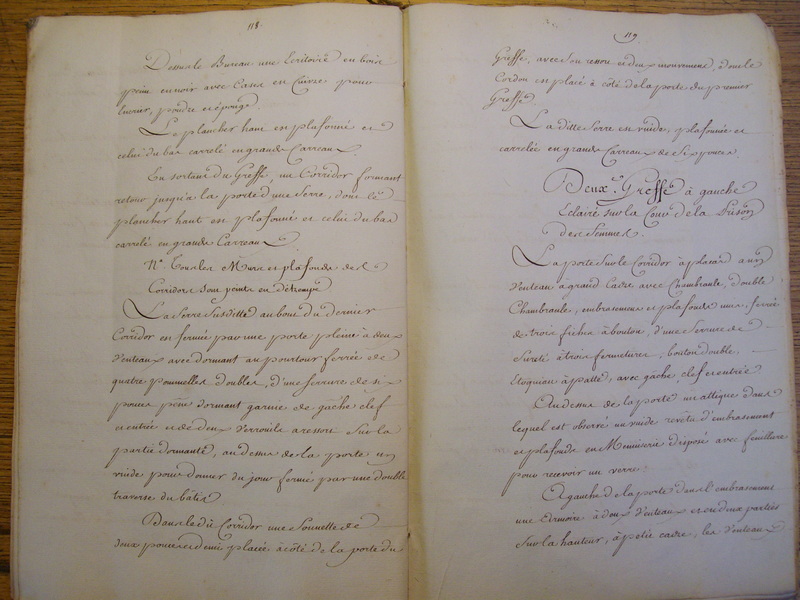 118.
Dessus le Bureau une Ecritoire en bois
peint en noir avec Casse en Cuivre pour
lencrier, poudre et éponge.
Le plancher haut en plafonné et
celui du bas carrelé en grands Carreaux.
En sortant du Greffe, un Corridor formant
retour jusqu'a la porte d'une Serre, dont le
plancher haut est plafonné et celui du bas
carrelé en grands Carreaux
Nª. Tous les Murs et plafonds des
Corridors sont peints en détrempe
La Serre Susditte au bout du dernier
Corridor est fermée par une porte pleine à deux
Venteaux avec dormant au pourtour ferrée de
quatre pommelles doubles, d'une serrure de six
pouces pêne dormant garnie de gâche clef
et entrée et de deux Verrouils a ressort Sur la
partie dormante, au dessus de la porte un
vuide pour donner du jour fermé par une double
traverse du bâtis
Dans le dit Corridor une Sonnette de
deux pouces et demie placée à côté de la porte du
119
Greffe, avec son ressort et deux mouvements, dont le
Cordon est placé à côté de la porte du premier
Greffe.
La ditte Serre est vuide, plafonnée et
carrelée en grands Carreaux de six pouces.
Deux.e Greffe à gauche
Eclairé sur la Cour de la Prison
des femmes.
La porte sur le Corridor à placard a un
Venteau à grand Cadre avec Chambranle, double
Chambranle, embrasement et plafonds unis, ferrée
de trois fiches à bouton, d'une Serrure de
Sureté à trois fermetures, bouton double,
Loqueteau à patte, avec gâche, clef et entrée
Au dessus de la porte un attique dans
lequel est observé un vuide revêtu d'embrasement
et plafonds en Menuiserie disposé avec feuillure
pour recevoir un verre.
A gauche de la porte dans l'embrasement
une Armoire à deux Venteaux et en deux parties
Sur la hauteur, à petit cadre, les Venteaux